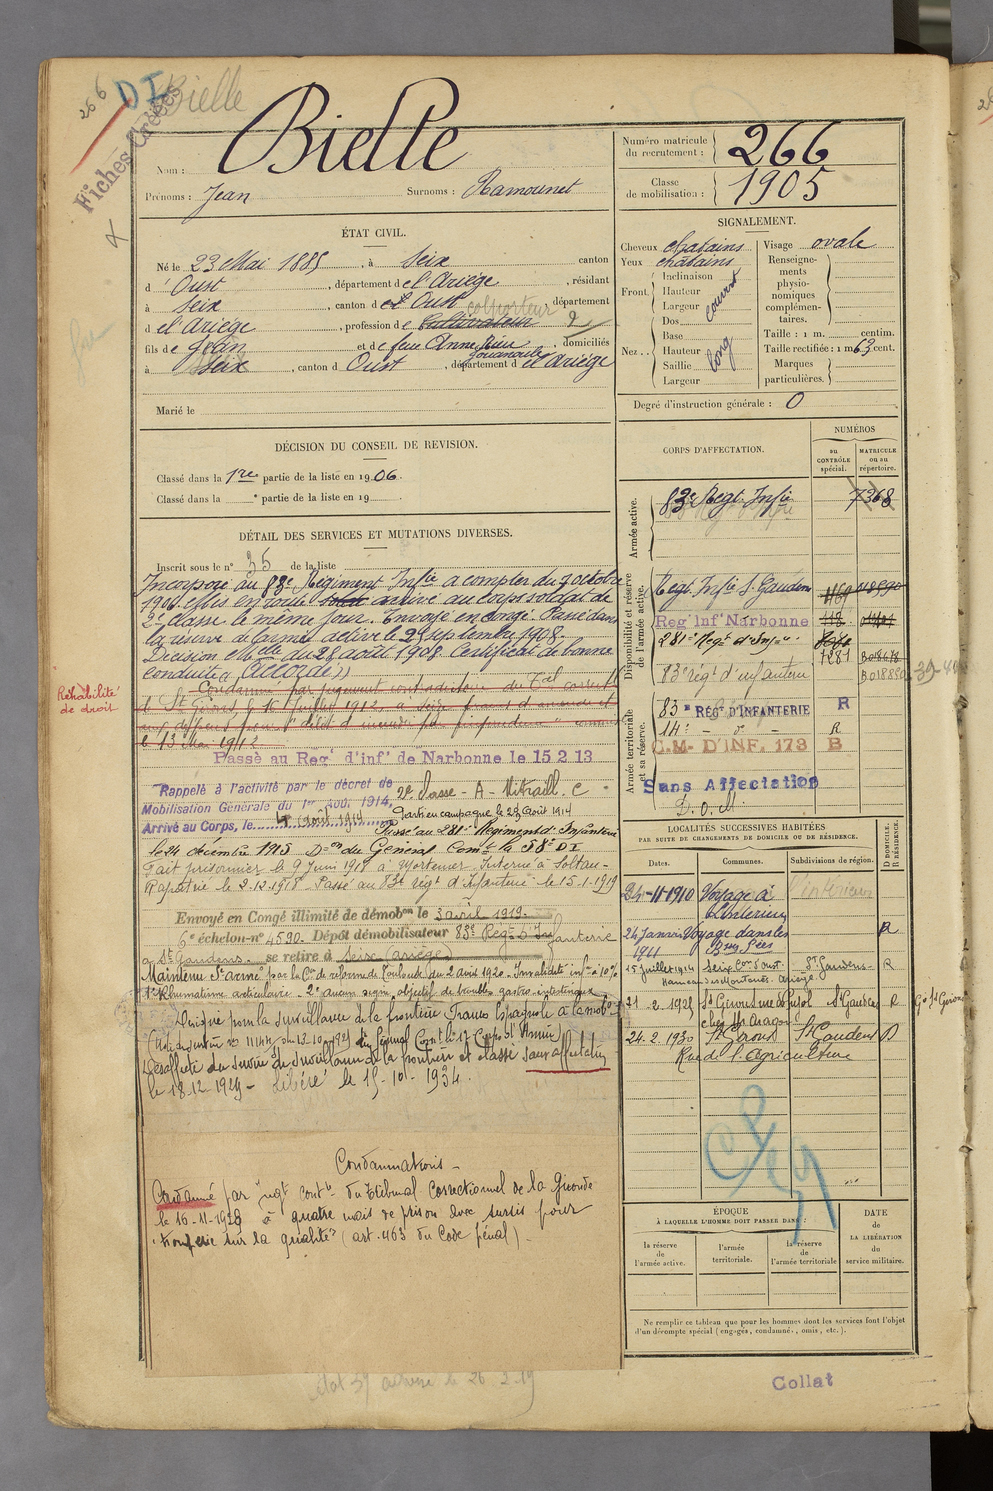 266
DI
Bielle
Fiches Créées
Nom : Bielle
Prénoms : Jean Surnoms : Ramounet
Numéro matricule du recrutement : 266
Classe de mobilisation : 1905
ÉTAT CIVIL.
Né le 23 Mai 1885, à Seix canton
d'Oust, département de l'Ariège, résidant
à Seix, canton d Oust, département
de l'Ariège, profession de cultivateur colporteur 2
fils de Jean et de feue Anne Rieu domiciliés
à Seix, canton d Oust, département de l'Ariège
Marié le
SIGNALEMENT.
Cheveux chatains Visage ovale
Yeux chatains
Front. Inclinaison Hauteur Largeur couvert
Nez.. Dos Base Hauteur Saillie Largeur long
Renseignements physionomiques complémentaires.
Taille : 1 m. centim.
Taille rectifiée : 1 m 63 cent.
Marques particulières.
Degré d'instruction générale : 0
DÉCISION DU CONSEIL DE REVISION.
Classé dans la 1re partie de la liste en 1906.
Classé dans la e partie de la liste en 19
DÉTAIL DES SERVICES ET MUTATIONS DIVERSES.
Inscrit sous le n° 35 de la liste
Incorporé au 83e Régiment Infie a compter du 7 octobre
1906 et mis en route arrivé au corps soldat de
2e classe le même jour. Envoyé en congé. Passé dans
la réserve de l'armée active le 25 septembre 1908.
Décision Mlle du 28 août 1908. Certificat de bonne
conduite "Accordé"
Condamné par jugement contradictoire du Tal correctl
de St Girons, le 16 juillet 1912, à seize francs d'amende et
aux dépens pour "délit d'incendie par imprudence" commis
le 13 Mai 1912
Réhabilité
de droit
Passé au Regt d'infie de Narbonne le 15 2 13
Rappelé à l'activité par le décret de
Mobilisation Générale du 1er Août 1914,
Arrivé au Corps, le 4 août 1914
2e classe - A - Mitraill. C
Parti en campagne le 23 août 1914
Passé au 281e Régiment d'Infanterie
le 24 décembre 1915 Don du Général Comt la 58e DI
Fait prisonnier le 9 Juin 1918 à Mortemer Interné à Soltau -
Rapatrié le 2.12.1918 Passé au 83e régt d'Infanterie le 15-1-1919
Envoyé en Congé illimité de démobon le 3 avril 1919.
6e échelon-n° 4590. Dépôt démobilisateur 83e Régt d'Infanterie
à St Gaudens. se retire à Seix (Ariège)
Maintenu St armé par la Con de réforme de Toulouse du 2 avril 1920 - Invalidité infre à 10%
1° Rhumatisme articulaire - 2° aucun signe objectif de troubles gastro-intestinaux
Désigné pour la surveillance de la frontière Franco Espagnole à la mobon
Désaffecté du service de surveillance de la frontière et classé sans affectation
le 18-12-1929 - Libéré le 15-10-1934.
Condamnations -
Condamné par jugt contre du tribunal correctionnel de la Gironde
le 16-11-1928 à quatre mois de prison avec sursis pour
"tromperie sur la qualité" (art. 463 du Code pénal).
CORPS D'AFFECTATION.
NUMÉROS
au CONTRÔLE spécial. MATRICULE ou au répertoire.
Armée active.
83e Régt Infie 7368
Disponibilité et réserve de l'armée active.
Regt Infie St Gaudens 1169
Reg Inf Narbonne 118
281e Regt d'Infie
1281
83e régt d'infanterie
Armée territoriale et sa réserve.
83e REGt D'INFANTERIE R
14e - d° - R
C.M. D'INF. 173 B
Sans Affectation
D.O.M.
LOCALITÉS SUCCESSIVES HABITÉES
PAR SUITE DE CHANGEMENTS DE DOMICILE OU DE RÉSIDENCE.
Dates. Communes. Subdivisions de région. D DOMICILE. R RÉSIDENCE.
24-11-1910 Voyage à l'intérieur
24 Janvier 1911 Voyage dans les Bses Pées R
15 Juillet 1914 Seix Con d'Oust St Gaudens - R
21 2. 1925 St Girons rue Pujol St Gaudens R
chez Mr Aragon
24.2. 1930 St Girons St Gaudens D
Rue de l'Agriculture
ÉPOQUE
À LAQUELLE L'HOMME DOIT PASSER DANS :
la réserve de l'armée active. l'armée territoriale. la réserve de l'armée territoriale
DATE de LA LIBÉRATION du service militaire.
Ne remplir ce tableau que pour les hommes dont les services font l'objet
d'un décompte spécial (engagés, condamnés, omis, etc.).
Collat